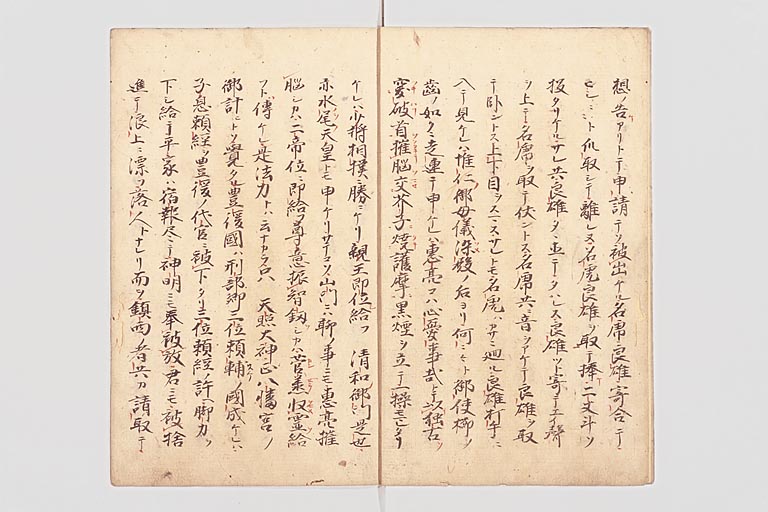 想ノ告アリトテ申請テソ被出ケル名席良雄寄合テ
爪取シテ離レヌ名虎良雄ヲ取テ捧二丈斗ソ
投タリケルサレ共良雄タヽ立ニテタハレス良雄ツト寄テエイ声
ヲ上テ名席ヲ取テ伏ントス名席共ニ音ヲツケテ良雄ヲ取
テ臥ントス上下目ヲスマスサレトモ名虎ハカサニ廻ル良雄打手ニ
入テ見ケレハ惟仁御母儀染殿ノ后ヨリ何ニヤト御使櫛ノ
歯ノ如ク走連テ申ケレハ恵亮コハ心憂事哉トテ以独古ヲ
突破首摧脳交芥子焼護摩黒煙ヲ立テ一揉モミタリ
ケレハ少将相撲ニ勝ニケリ親王即位給フ 清和御門是也
亦水尾天皇トモ申ケリサテコソ山門ニハ聊ノ事ニモ恵亮摧
脳シカハ二帝位ニ即給フ尊意振智釼シカハ菅丞収霊給
フト傳ケレ是法力トハ云ナカラ只ハ 天照大神正八幡宮ノ
御計ニトソ覚タル豊後國ハ刑部卿三位頼輔ノ國成ケレハ
子息頼経ヲ豊後ノ代官ニ被下タリ三位頼経ノ許ヘ脚力ヲ
下シ給テ平家ハ宿報尽テ神明ニモ奉被放君ニモ被捨
進テ浪上ニ漂ヲ落人トナレリ而ヲ鎮西ノ者共カ請取テ